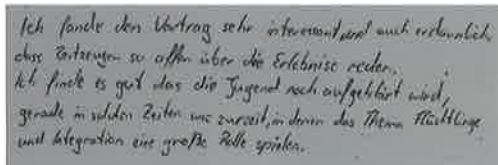 Ich fande den Vortrag sehr interessant und auch erstaunlich,
dass Zeitzeugen so offen über die Erlebnise reden.
Ich finde es gut das die Jugend noch aufgeklärt wird,
gerade in solchen Zeiten wie zurzeit, in denen das Thema Flüchtlinge
und Integration eine große Rolle spielen.